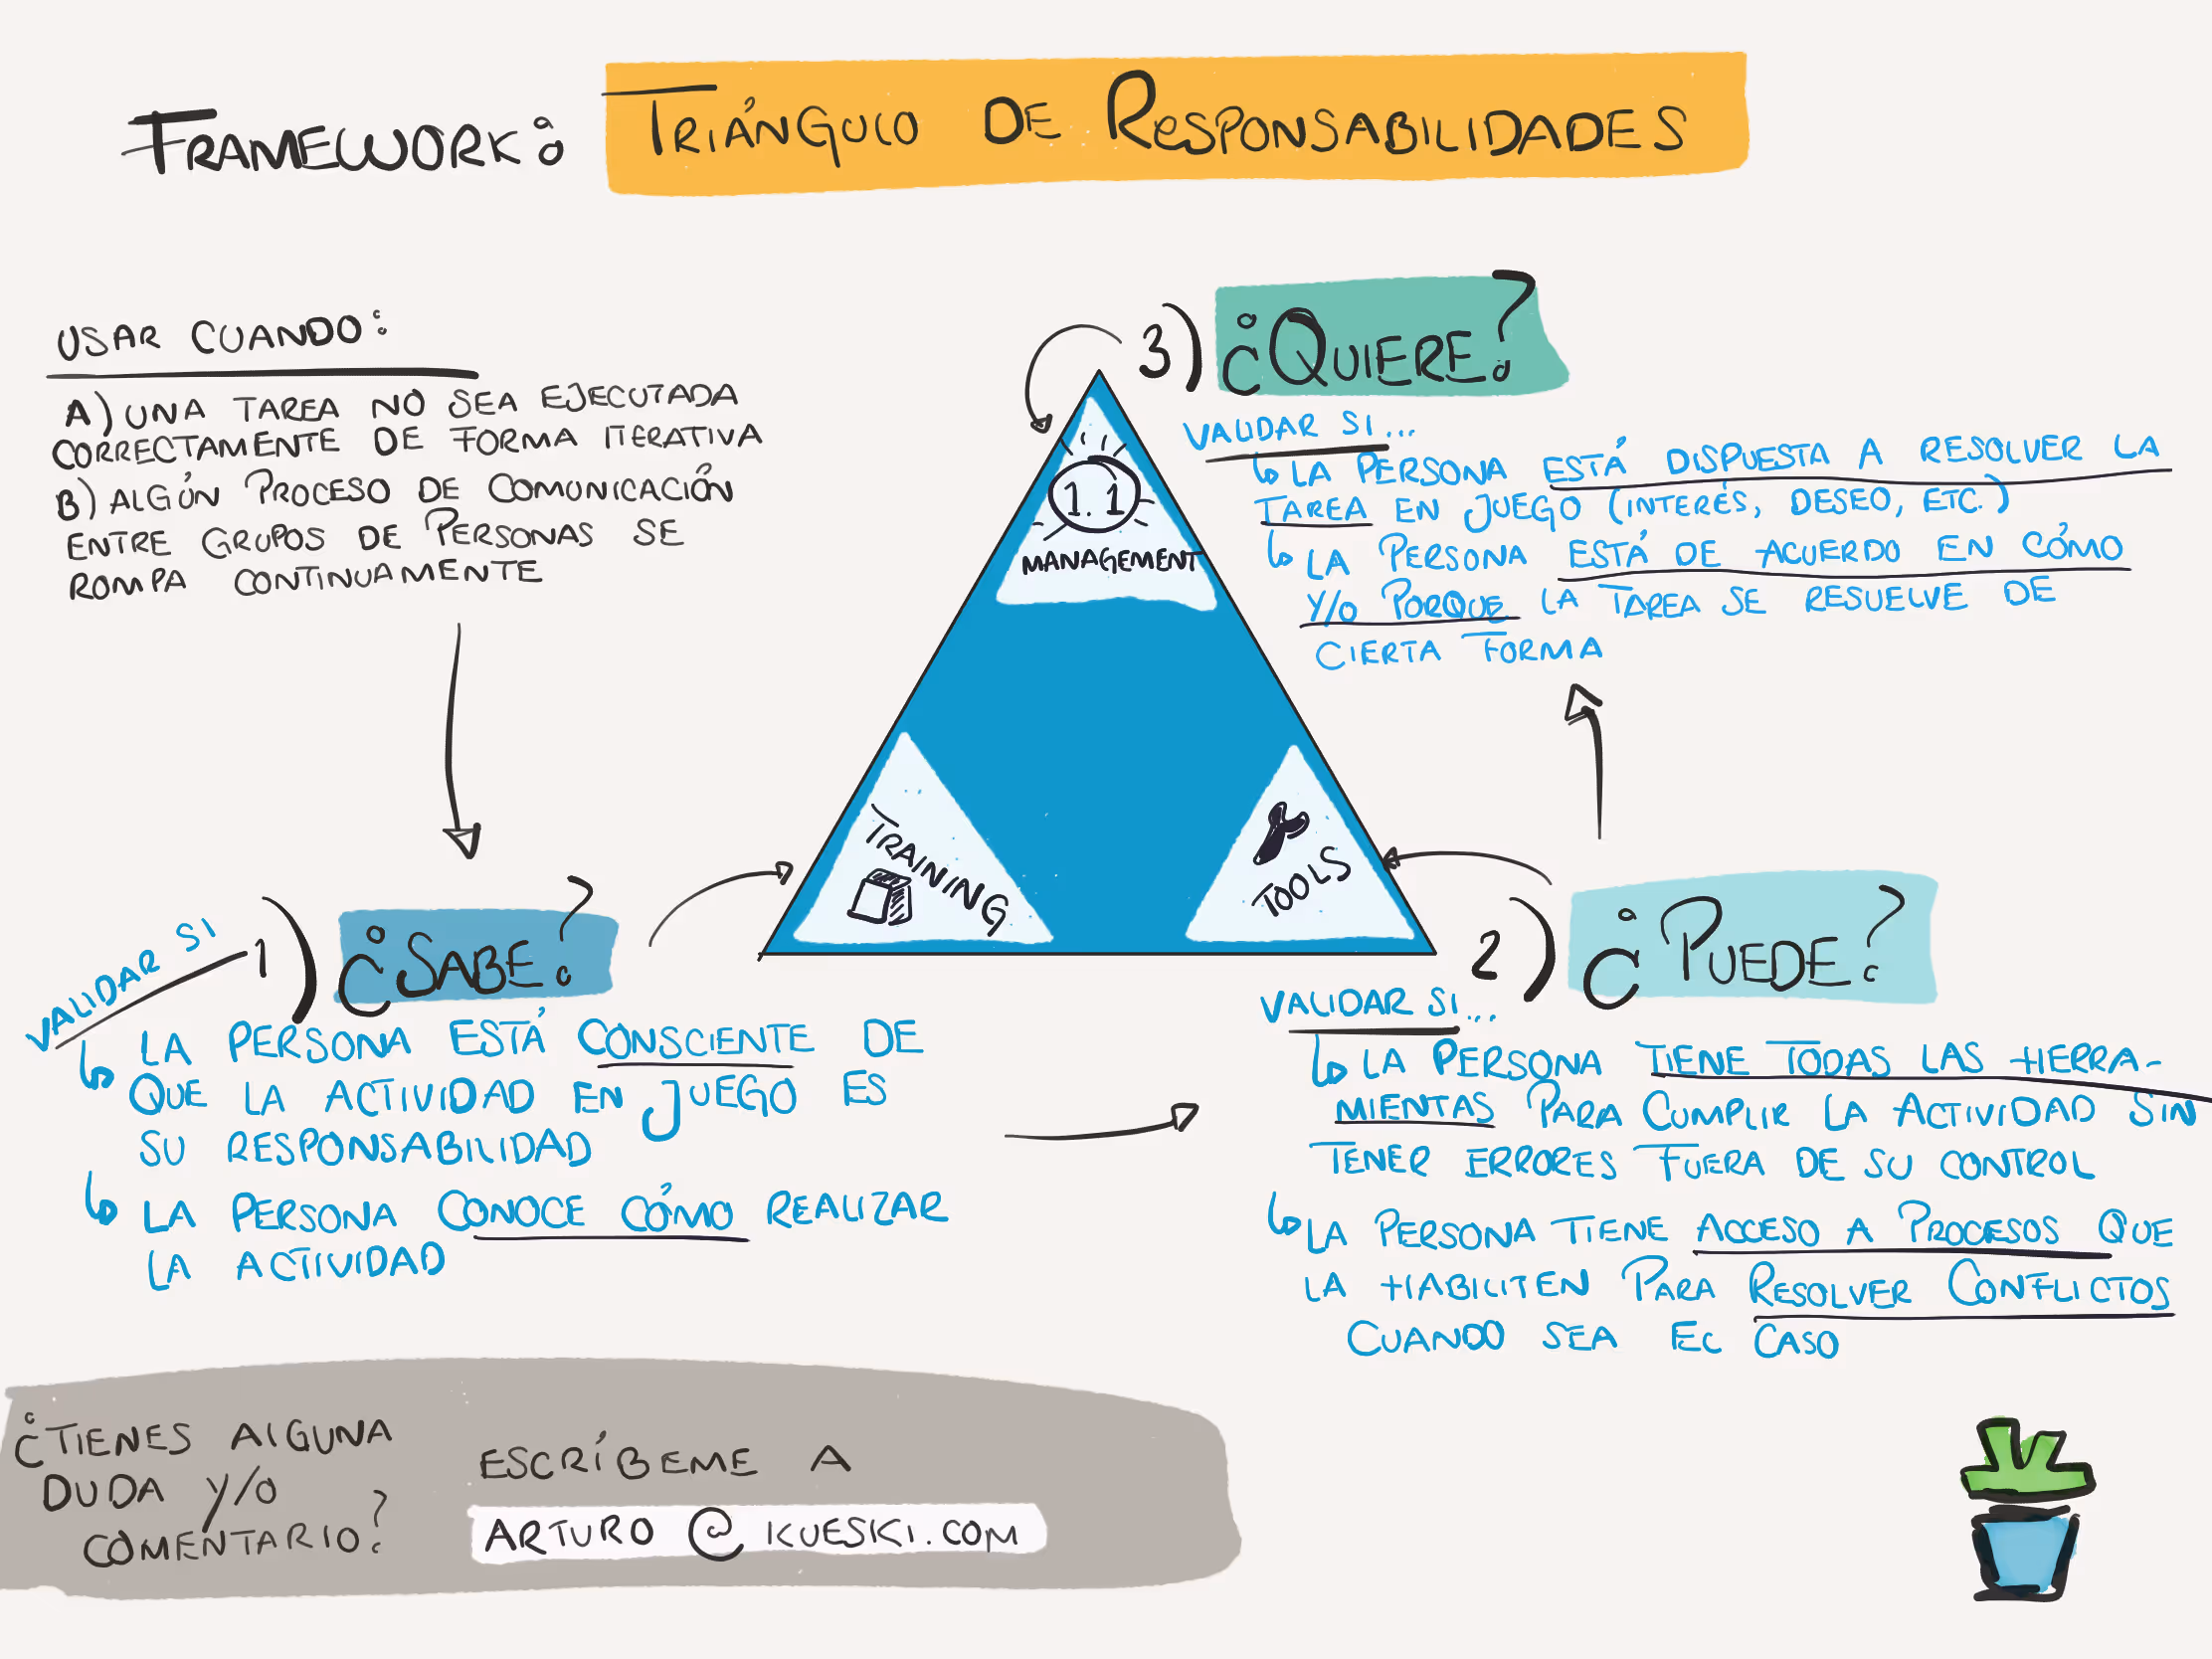 FRAMEWORK:
TRIÁNGULO DE RESPONSABILIDADES
USAR CUANDO:
A) UNA TAREA NO SEA EJECUTADA
CORRECTAMENTE DE FORMA ITERATIVA
B) ALGÚN PROCESO DE COMUNICACIÓN
ENTRE GRUPOS DE PERSONAS SE
ROMPA CONTINUAMENTE
3) ¿QUIERE?
VALIDAR SI...
LA PERSONA ESTÁ DISPUESTA A RESOLVER LA
TAREA EN JUEGO (INTERÉS, DESEO, ETC.)
LA PERSONA ESTÁ DE ACUERDO EN CÓMO
Y/O PORQUE LA TAREA SE RESUELVE DE
CIERTA FORMA
1.1
MANAGEMENT
TRAINING
TOOLS
VALIDAR SI
1) ¿SABE?
LA PERSONA ESTÁ CONSCIENTE DE
QUE LA ACTIVIDAD EN JUEGO ES
SU RESPONSABILIDAD
LA PERSONA CONOCE CÓMO REALIZAR
LA ACTIVIDAD
2) ¿PUEDE?
VALIDAR SI...
LA PERSONA TIENE TODAS LAS HERRA-
MIENTAS PARA CUMPLIR LA ACTIVIDAD SIN
TENER ERRORES FUERA DE SU CONTROL
LA PERSONA TIENE ACCESO A PROCESOS QUE
LA HABILITEN PARA RESOLVER CONFLICTOS
CUANDO SEA EL CASO
¿TIENES ALGUNA
DUDA Y/O
COMENTARIO?
ESCRÍBEME A
ARTURO @ KUESKI.COM